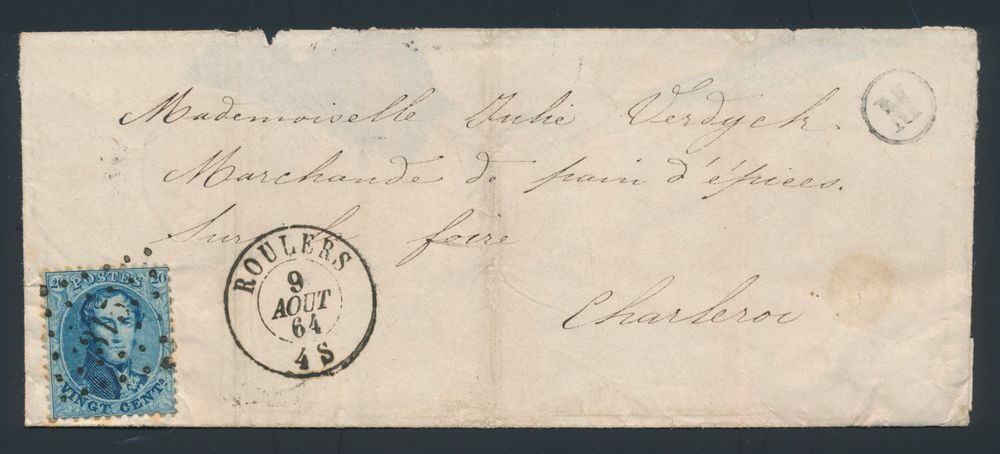 Mademoiselle Julie Verdyck.
Marchande de pain d'épices.
Sur la foire
Charleroi
ROULERS
9
AOUT
64
4 S
20 POSTES 20
VINGT CENTS